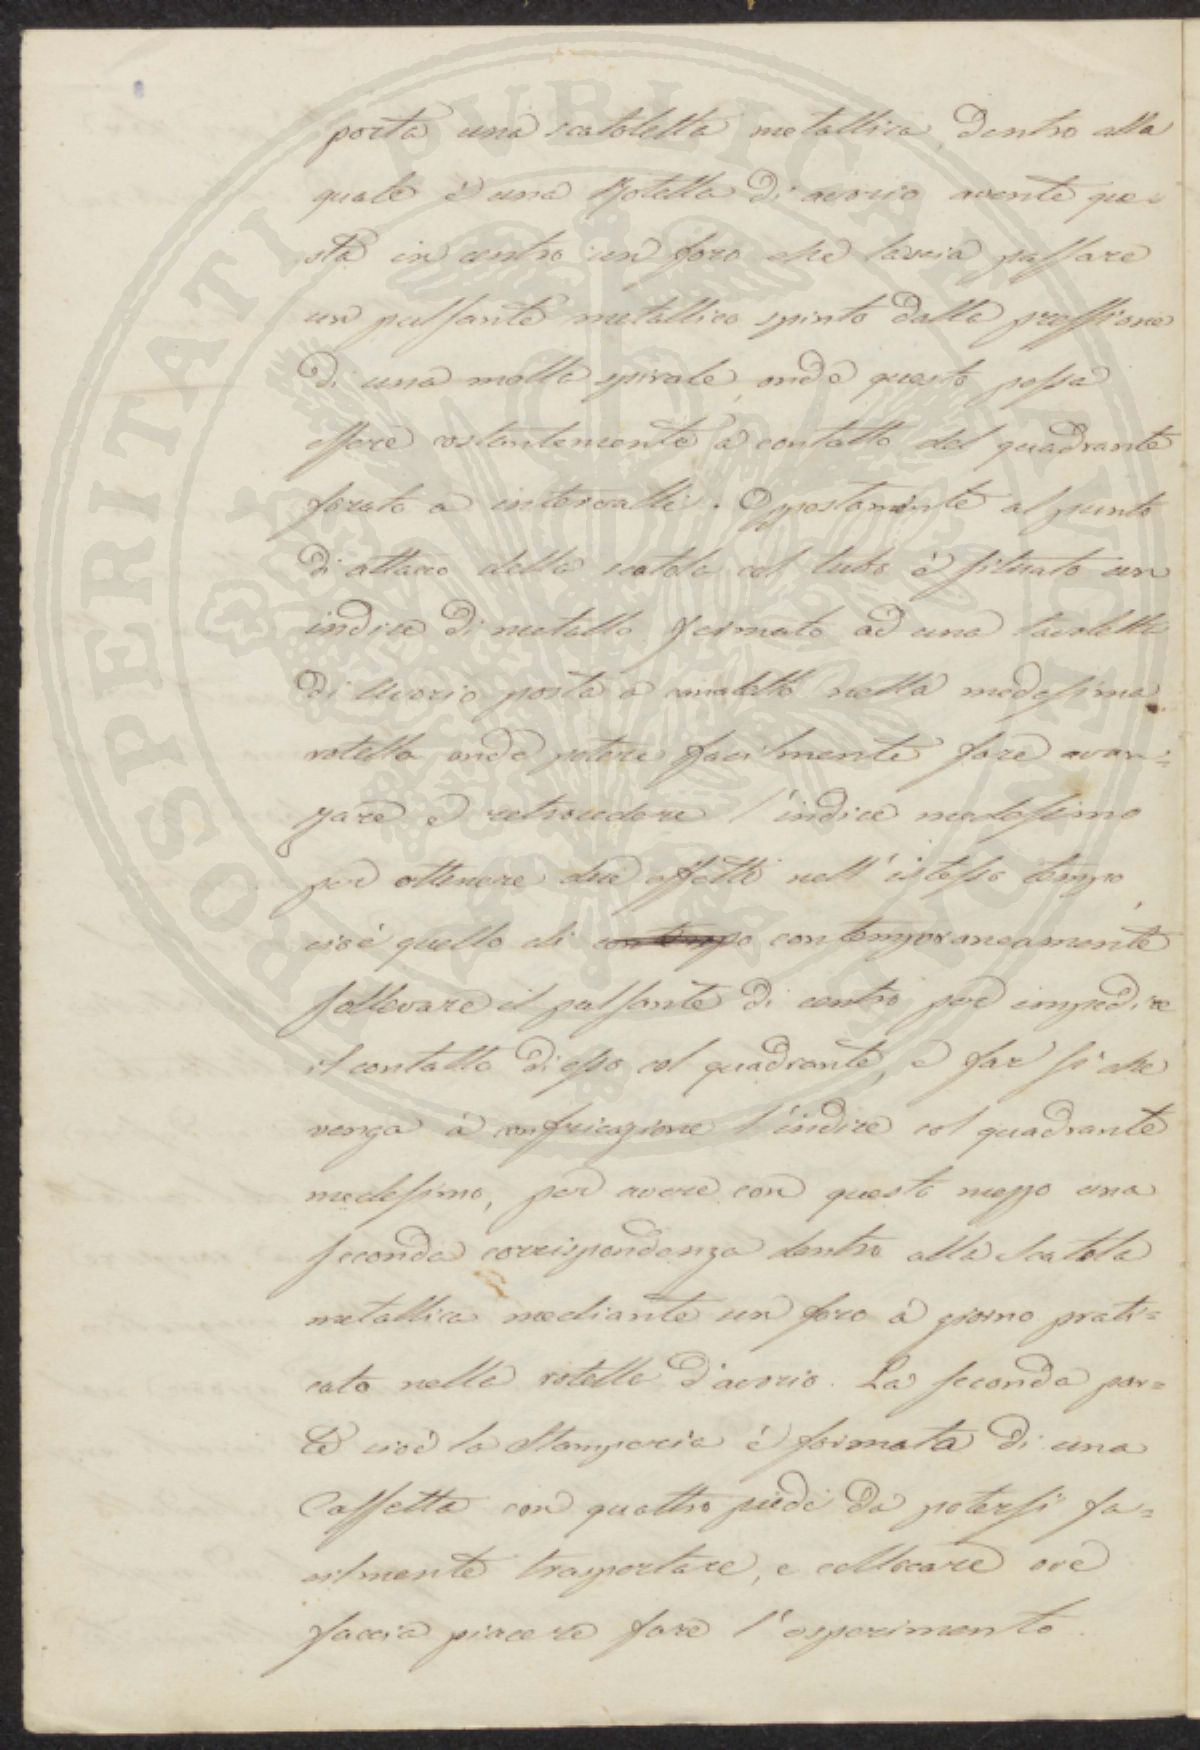 porta una scatoletta metallica, dentro alla
quale è una Rotella di avorio avente que-
sta in centro un foro che lascia passare
un pulsante metallico spinto dalla pressione
di una molla spirale, onde questo possa
essere costantemente a contatto del quadrante
forato a intervalli. Oppostamente al punto
di attacco della scatola col tubo è situato un
indice di metallo fermato ad una tavoletta
di Avorio posta a canaletto nella medesima
rotella onde potere facilmente fare avan=
zare e retrocedere l'indice medesimo
per ottenere due effetti nell'istesso tempo,
cioè quello di con tempo contemporaneamente
sollevare il pulsante di centro per impedire
il contatto di esso col quadrante, e far sì che
venga a confricazione l'indice col quadrante
medesimo, per avere con questo mezzo una
seconda corrispondenza dentro alla Scatola
metallica mediante un foro a giorno prati=
cato nella rotella d'avorio. La seconda par=
te cioè la Stamperia è formata di una
Cassetta con quattro piedi da potersi fa=
cilmente trasportare, e collocare ove
faccia piacere fare l'esperimento.
PROSPERITATI PUBLICAE